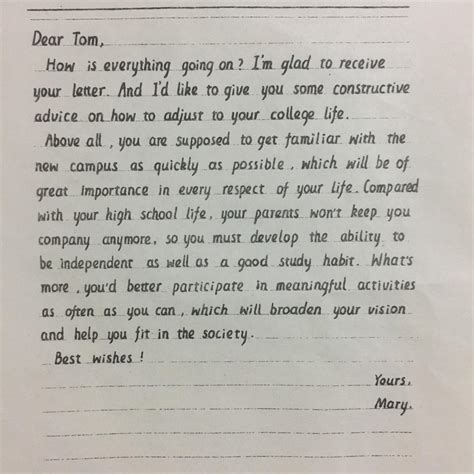 Dear Tom,
How is everything going on? I'm glad to receive
your letter. And I'd like to give you some constructive
advice on how to adjust to your college life.
Above all, you are supposed to get familiar with the
new campus as quickly as possible, which will be of
great importance in every respect of your life. Compared
with your high school life, your parents won't keep you
company anymore, so you must develop the ability to
be independent as well as a good study habit. What's
more, you'd better participate in meaningful activities
as often as you can, which will broaden your vision
and help you fit in the society.
Best wishes!
Yours,
Mary.